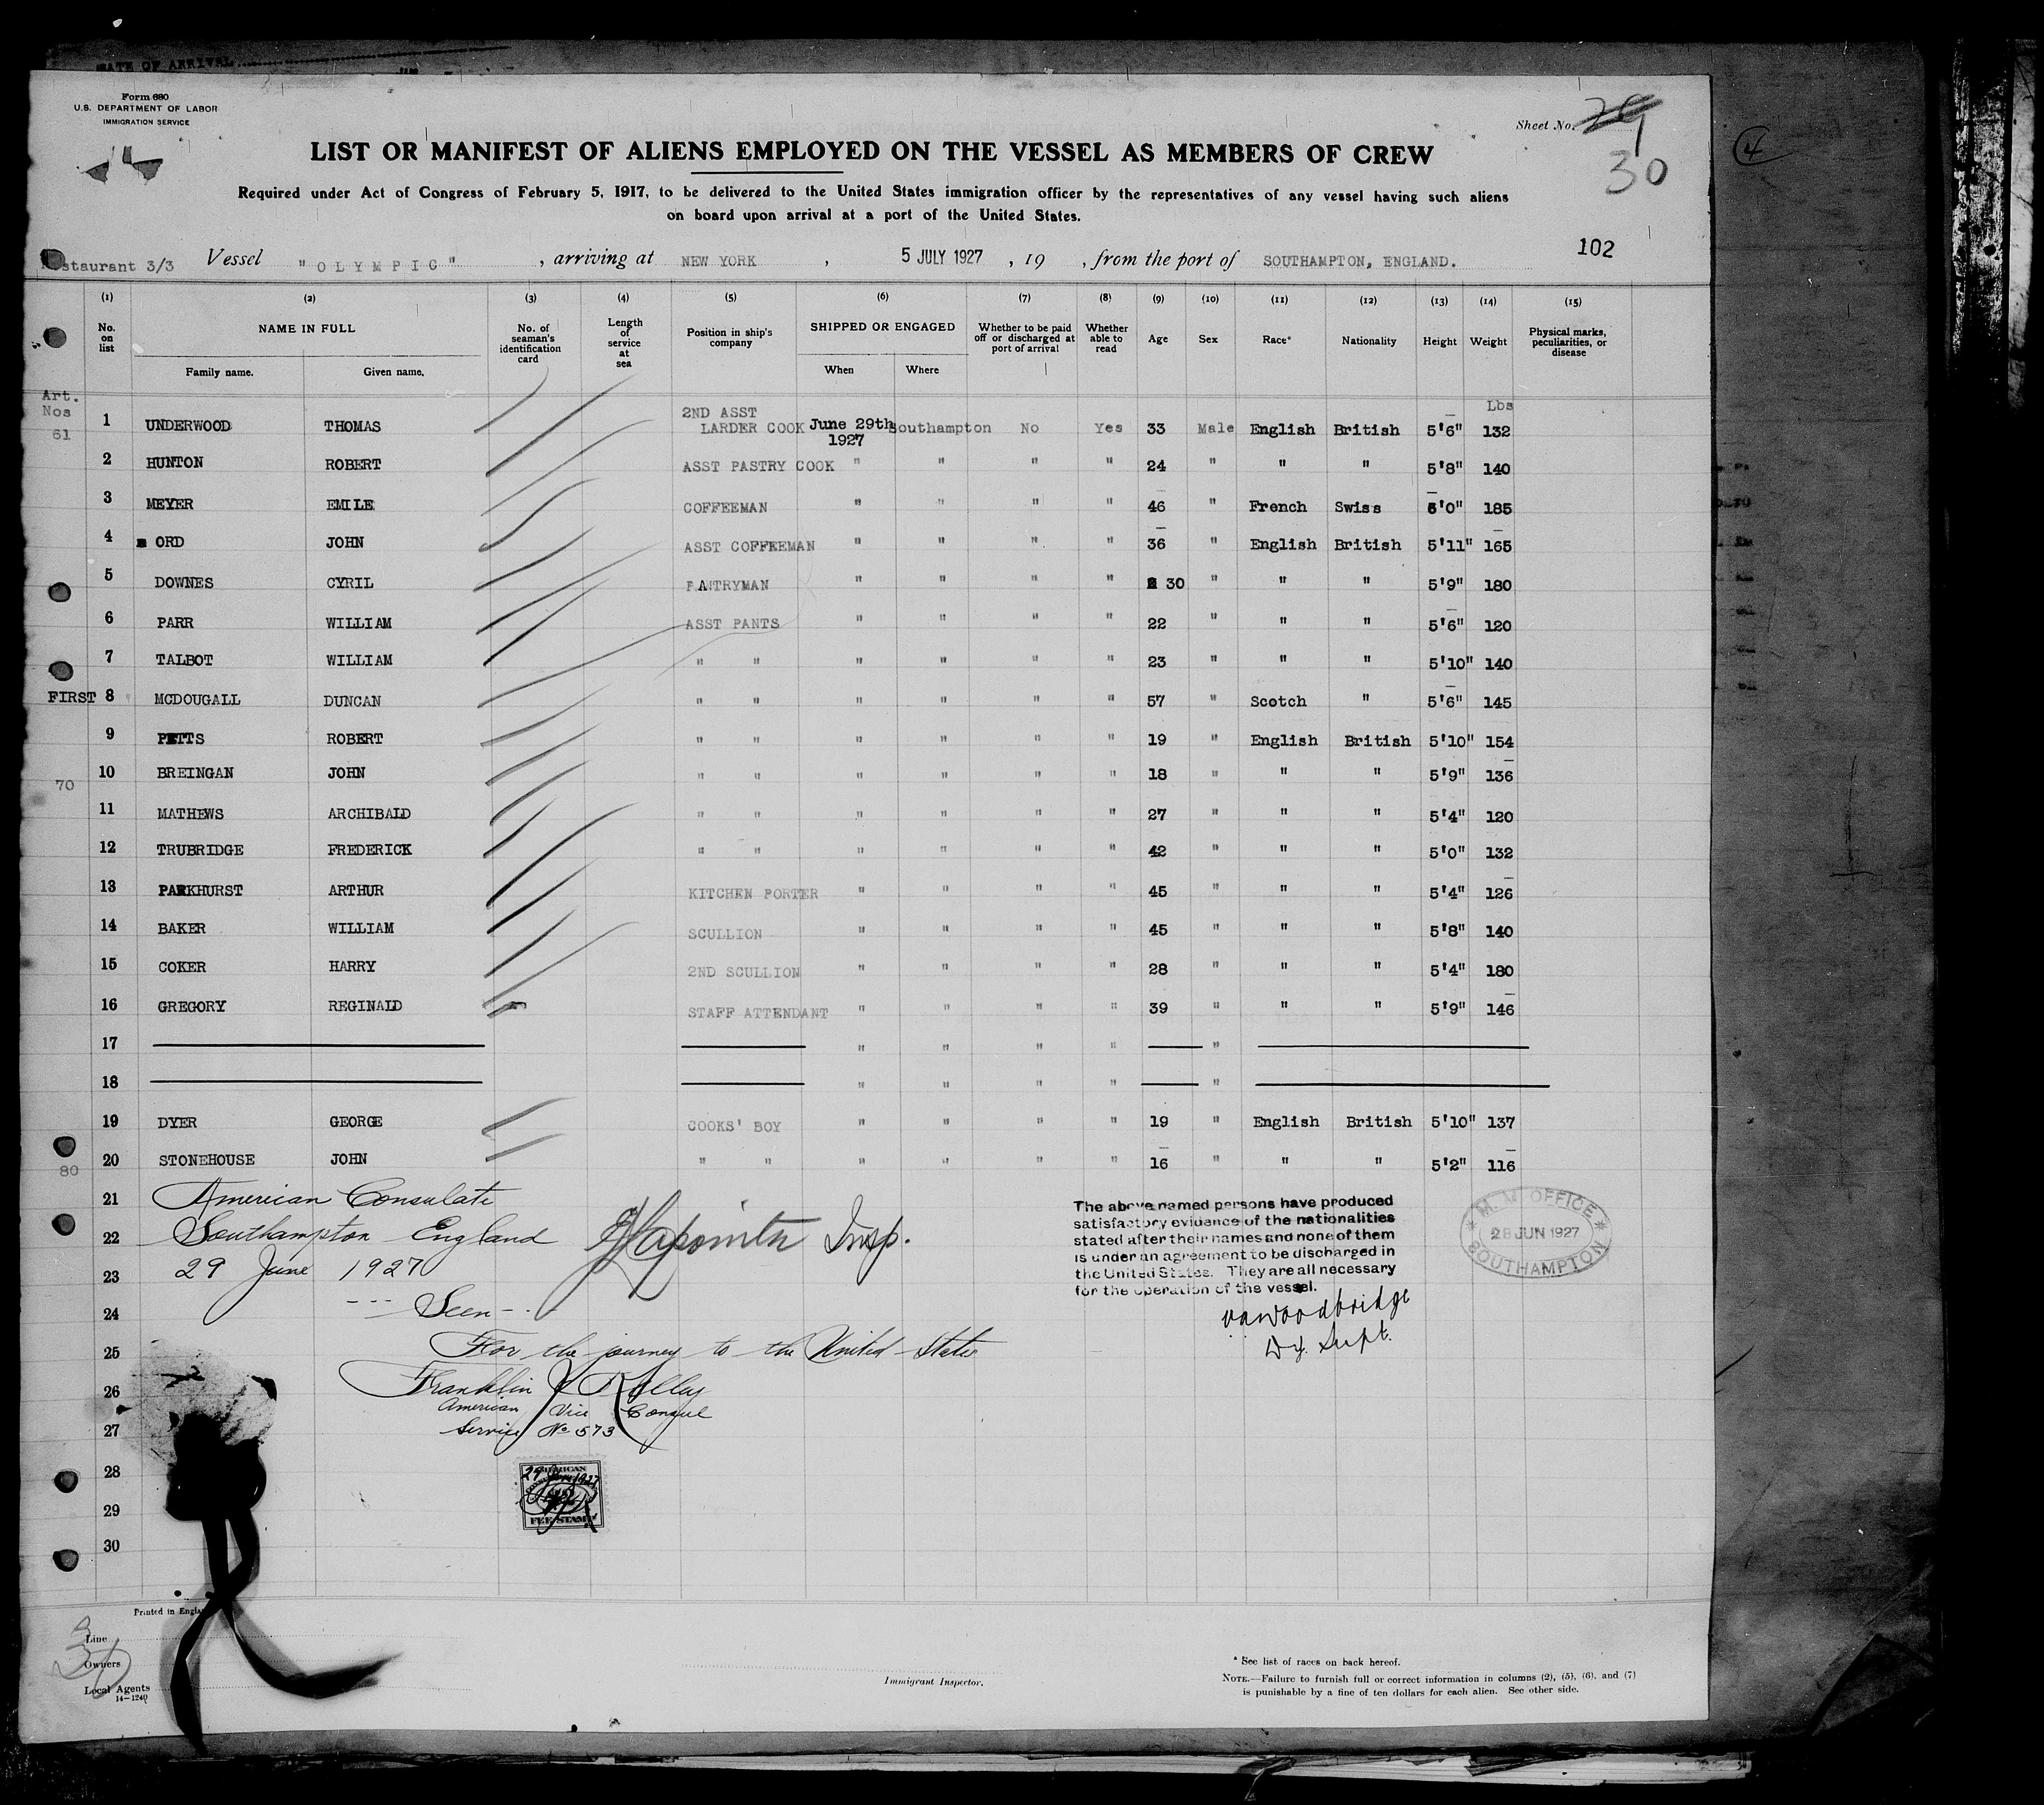 DATE OF ARRIVAL
Form 680
U.S. DEPARTMENT OF LABOR
IMMIGRATION SERVICE
Sheet No.
30
LIST OR MANIFEST OF ALIENS EMPLOYED ON THE VESSEL AS MEMBERS OF CREW
Required under Act of Congress of February 5, 1917, to be delivered to the United States immigration officer by the representatives of any vessel having such aliens
on board upon arrival at a port of the United States.
102
staurant 3/3 Vessel "OLYMPIC", arriving at NEW YORK, 5 JULY 1927, 19 , from the port of SOUTHAMPTON, ENGLAND.
(1) (2) (3) (4) (5) (6) (7) (8) (9) (10) (11) (12) (13) (14) (15)
No. on list NAME IN FULL Family name. Given name. No. of seaman's identification card Length of service at sea Position in ship's company SHIPPED OR ENGAGED When Where Whether to be paid off or discharged at port of arrival Whether able to read Age Sex Race* Nationality Height Weight Physical marks, peculiarities, or disease
Art. Nos 61 Lbs
1 UNDERWOOD THOMAS 2ND ASST LARDER COOK June 29th 1927 Southampton No Yes 33 Male English British 5'6" 132
2 HUNTON ROBERT ASST PASTRY COOK " " " " 24 " " " 5'8" 140
3 MEYER EMILE COFFEEMAN " " " " 46 " French Swiss 5'0" 185
4 ORD JOHN ASST COFFEEMAN " " " " 36 " English British 5'11" 165
5 DOWNES CYRIL PANTRYMAN " " " " 30 " " " 5'9" 180
6 PARR WILLIAM ASST PANTS " " " " 22 " " " 5'6" 120
7 TALBOT WILLIAM " " " " " " 23 " " " 5'10" 140
FIRST 8 MCDOUGALL DUNCAN " " " " " " 57 " Scotch " 5'6" 145
9 PETTS ROBERT " " " " " " 19 " English British 5'10" 154
70 10 BREINGAN JOHN " " " " " " 18 " " " 5'9" 136
11 MATHEWS ARCHIBALD " " " " " " 27 " " " 5'4" 120
12 TRUBRIDGE FREDERICK " " " " " " 42 " " " 5'0" 132
13 PARKHURST ARTHUR KITCHEN PORTER " " " " 45 " " " 5'4" 126
14 BAKER WILLIAM SCULLION " " " " 45 " " " 5'8" 140
15 COKER HARRY 2ND SCULLION " " " " 28 " " " 5'4" 180
16 GREGORY REGINALD STAFF ATTENDANT " " " " 39 " " " 5'9" 146
17 " " " " "
18 " " " " "
19 DYER GEORGE COOKS' BOY " " " " 19 " English British 5'10" 137
80 20 STONEHOUSE JOHN " " " " " " 16 " " " 5'2" 116
21 American Consulate
22 Southampton England
23 29 June 1927
24 --- Seen --
25 For the journey to the United States
26 Franklin Kelley
American Vice Consul
27 Service No 573
28
29
30
Insp.
The above named persons have produced
satisfactory evidence of the nationalities
stated after their names and none of them
is under an agreement to be discharged in
the United States. They are all necessary
for the operation of the vessel.
Woodbridge
Dy. Supt.
M.M. OFFICE
28 JUN 1927
SOUTHAMPTON
AMERICAN
FEE STAMP
Printed in Engla
Line
Owners
Local Agents
14-1240
Immigrant Inspector.
* See list of races on back hereof.
NOTE.—Failure to furnish full or correct information in columns (2), (5), (6), and (7)
is punishable by a fine of ten dollars for each alien. See other side.